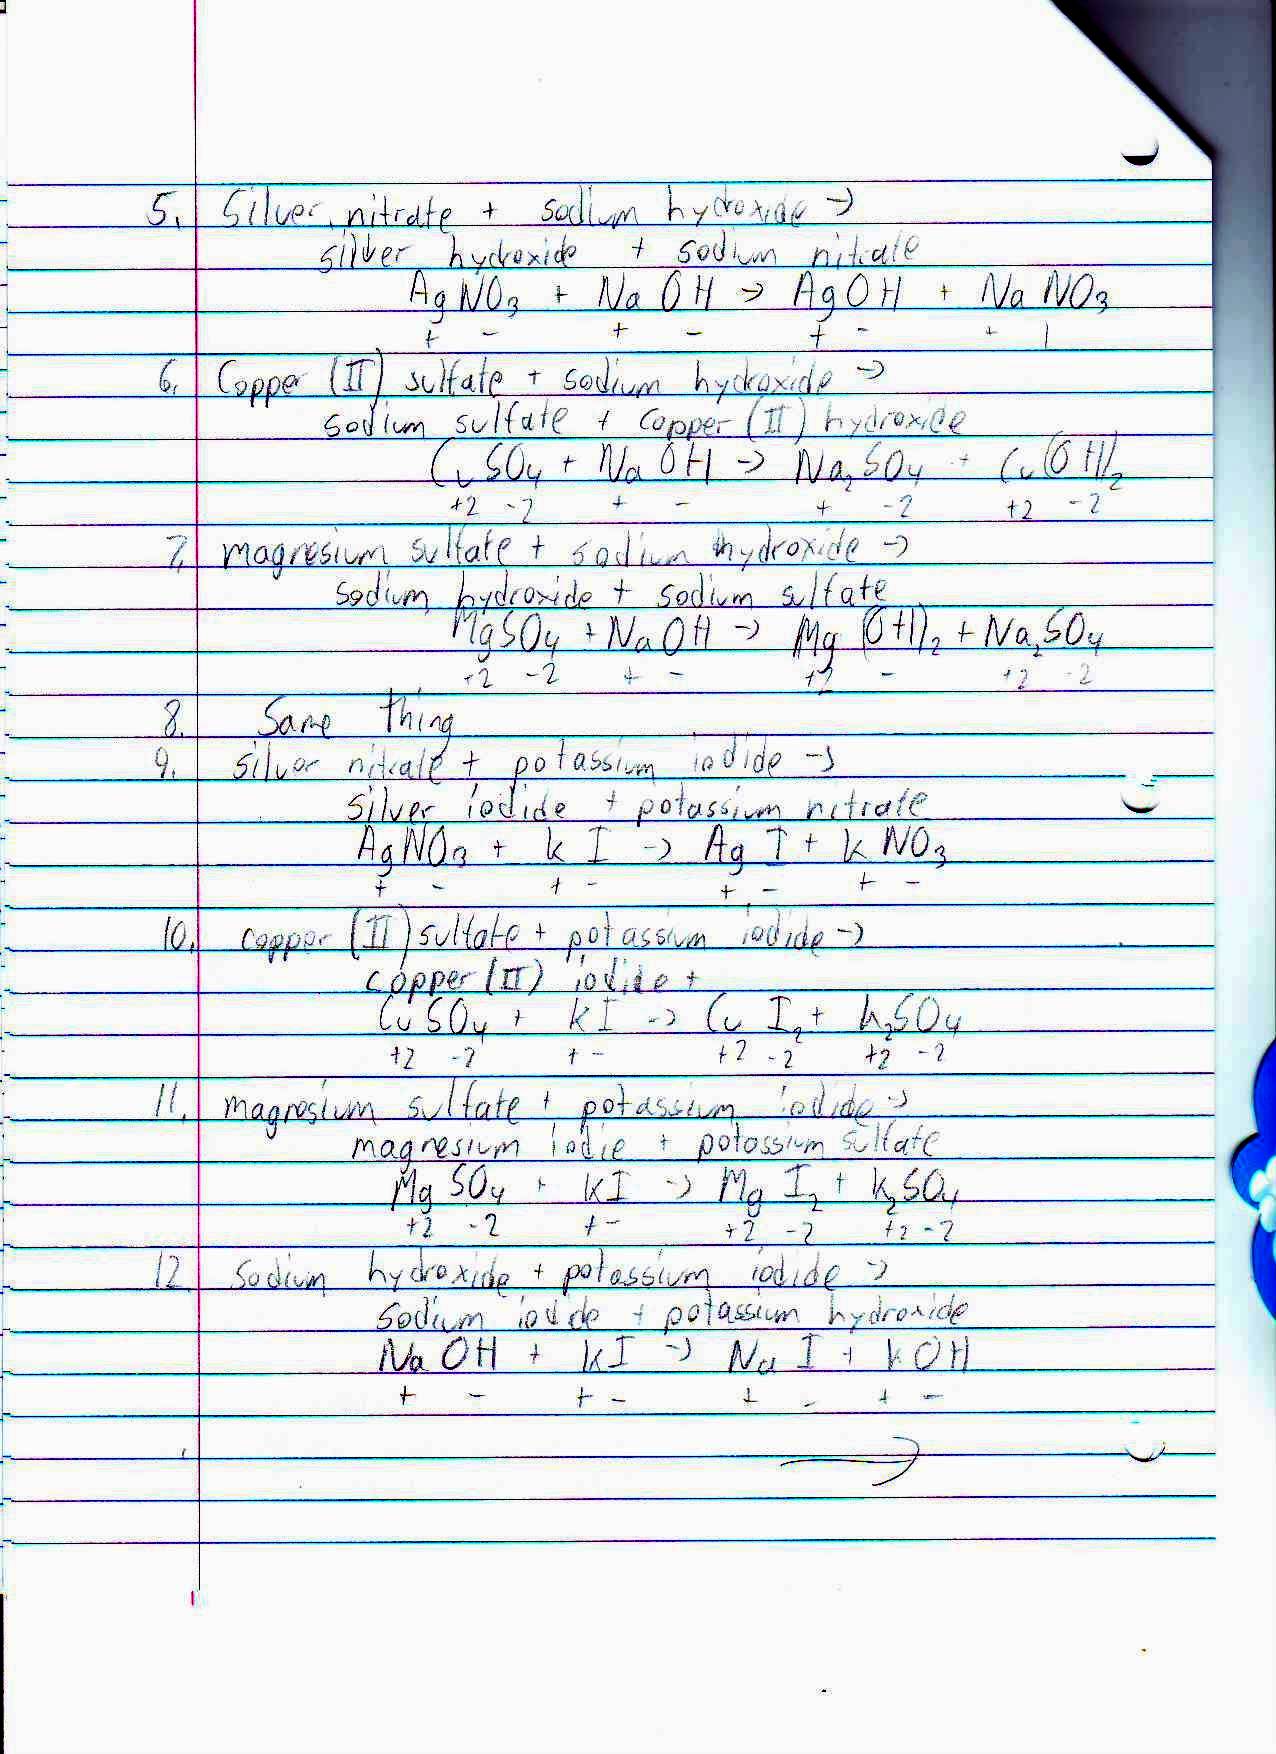 5. Silver nitrate + sodium hydroxide →
silver hydroxide + sodium nitrate
AgNO3 + NaOH → AgOH + NaNO3
+ - + - + - + |
6. Copper (II) sulfate + sodium hydroxide →
sodium sulfate + copper (II) hydroxide
CuSO4 + NaOH → Na2SO4 + Cu(OH)2
+2 -2 + - + -2 +2 -2
7. magnesium sulfate + sodium hydroxide →
sodium hydroxide + sodium sulfate
MgSO4 + NaOH → Mg(OH)2 + Na2SO4
+2 -2 + - +2 - +2 -2
8. Same thing
9. silver nitrate + potassium iodide →
silver iodide + potassium nitrate
AgNO3 + kI → AgI + kNO3
+ - + - + - + -
10. copper (II) sulfate + potassium iodide →
copper (II) iodide +
CuSO4 + kI → CuI2 + k2SO4
+2 -2 + - +2 -2 +2 -2
11. magnesium sulfate + potassium iodide →
magnesium iodie + potassium sulfate
MgSO4 + kI → MgI2 + k2SO4
+2 -2 + - +2 -2 +2 -2
12 sodium hydroxide + potassium iodide →
sodium iodide + potassium hydroxide
NaOH + kI → NaI + kOH
+ - + - + - + -
→